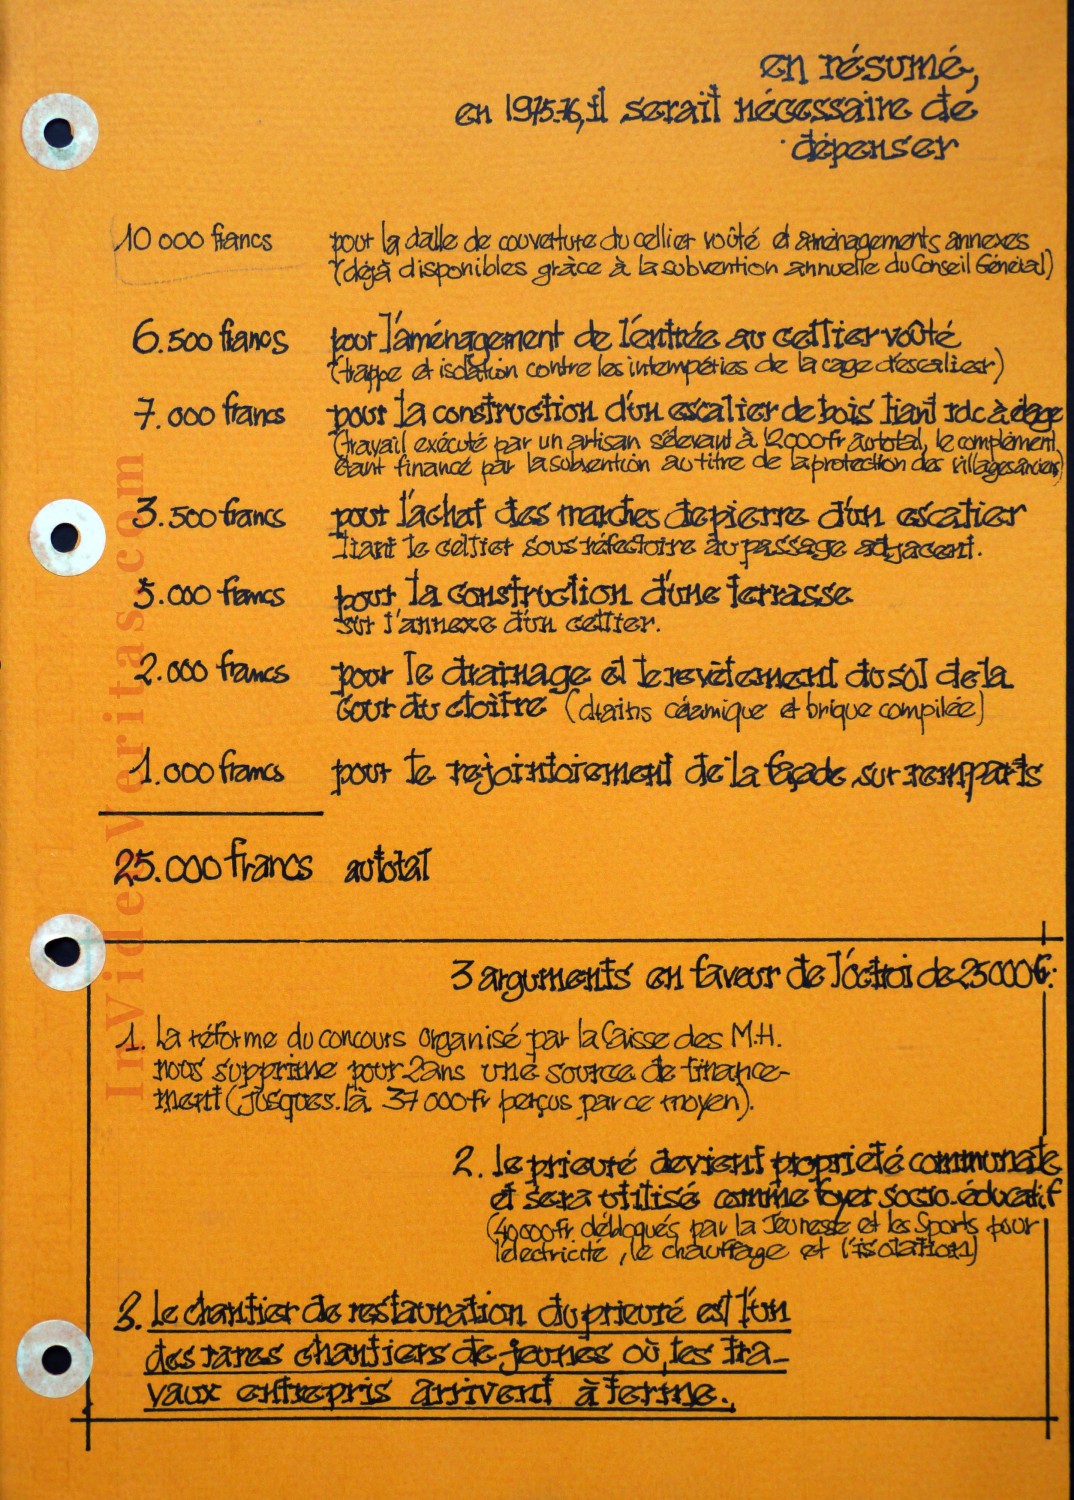 en résumé,
en 1975.76, il serait nécessaire de
dépenser
10 000 francs pour la dalle de couverture du cellier voûté et aménagements annexes
(déjà disponibles grâce à la subvention annuelle du Conseil Général)
6.500 francs pour l'aménagement de l'entrée au cellier voûté
(trappe et isolation contre les intempéries de la cage d'escalier)
7.000 francs pour la construction d'un escalier de bois liant rdc à étage
(travail exécuté par un artisan s'élevant à 12000fr au total, le complément
étant financé par la subvention au titre de la protection des villages anciens)
3.500 francs pour l'achat des marches de pierre d'un escalier
liant le cellier sous réfectoire au passage adjacent.
5.000 francs pour la construction d'une terrasse
sur l'annexe d'un cellier.
2.000 francs pour le drainage et le revètement du sol de la
cour du cloître (drains céramique et brique compilée)
1.000 francs pour le rejointoiement de la façade sur remparts
25.000 francs au total
3 arguments en faveur de l'octroi de 25000F:
1. La réforme du concours organisé par la Caisse des M.H.
nous supprime pour 2ans une source de finance-
ment (jusques.là 37000fr perçus par ce moyen).
2. le prieuré devient propriété communale
et sera utilisé comme foyer socio.éducatif
(40000fr débloqués par la Jeunesse et les Sports pour
l'électricité, le chauffage et l'isolation)
3. Le chantier de restauration du prieuré est l'un
des rares chantiers de jeunes où, les tra-
vaux entrepris arrivent à terme.
InVideoVeritas.com